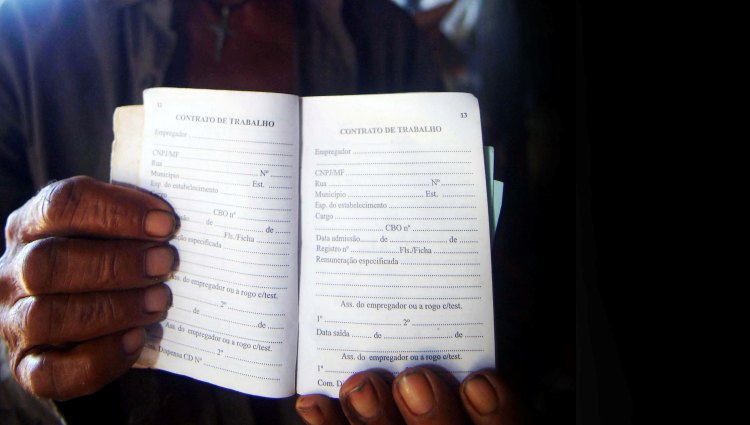 12
CONTRATO DE TRABALHO
Empregador
CNPJ/MF
Rua Nº
Município Est.
Esp. do estabelecimento
Cargo
CBO nº
de de
Fls./Ficha
especificada
Ass. do empregador ou a rogo c/test.
2º
de de
Ass. do empregador ou a rogo c/test.
2º
Dispensa CD Nº
13
CONTRATO DE TRABALHO
Empregador
CNPJ/MF
Rua Nº
Município Est.
Esp. do estabelecimento
Cargo
CBO nº
Data admissão de de
Registro nº Fls./Ficha
Remuneração especificada
Ass. do empregador ou a rogo c/test.
1º 2º
Data saída de de
Ass. do empregador ou a rogo c/test.
1º
Com.